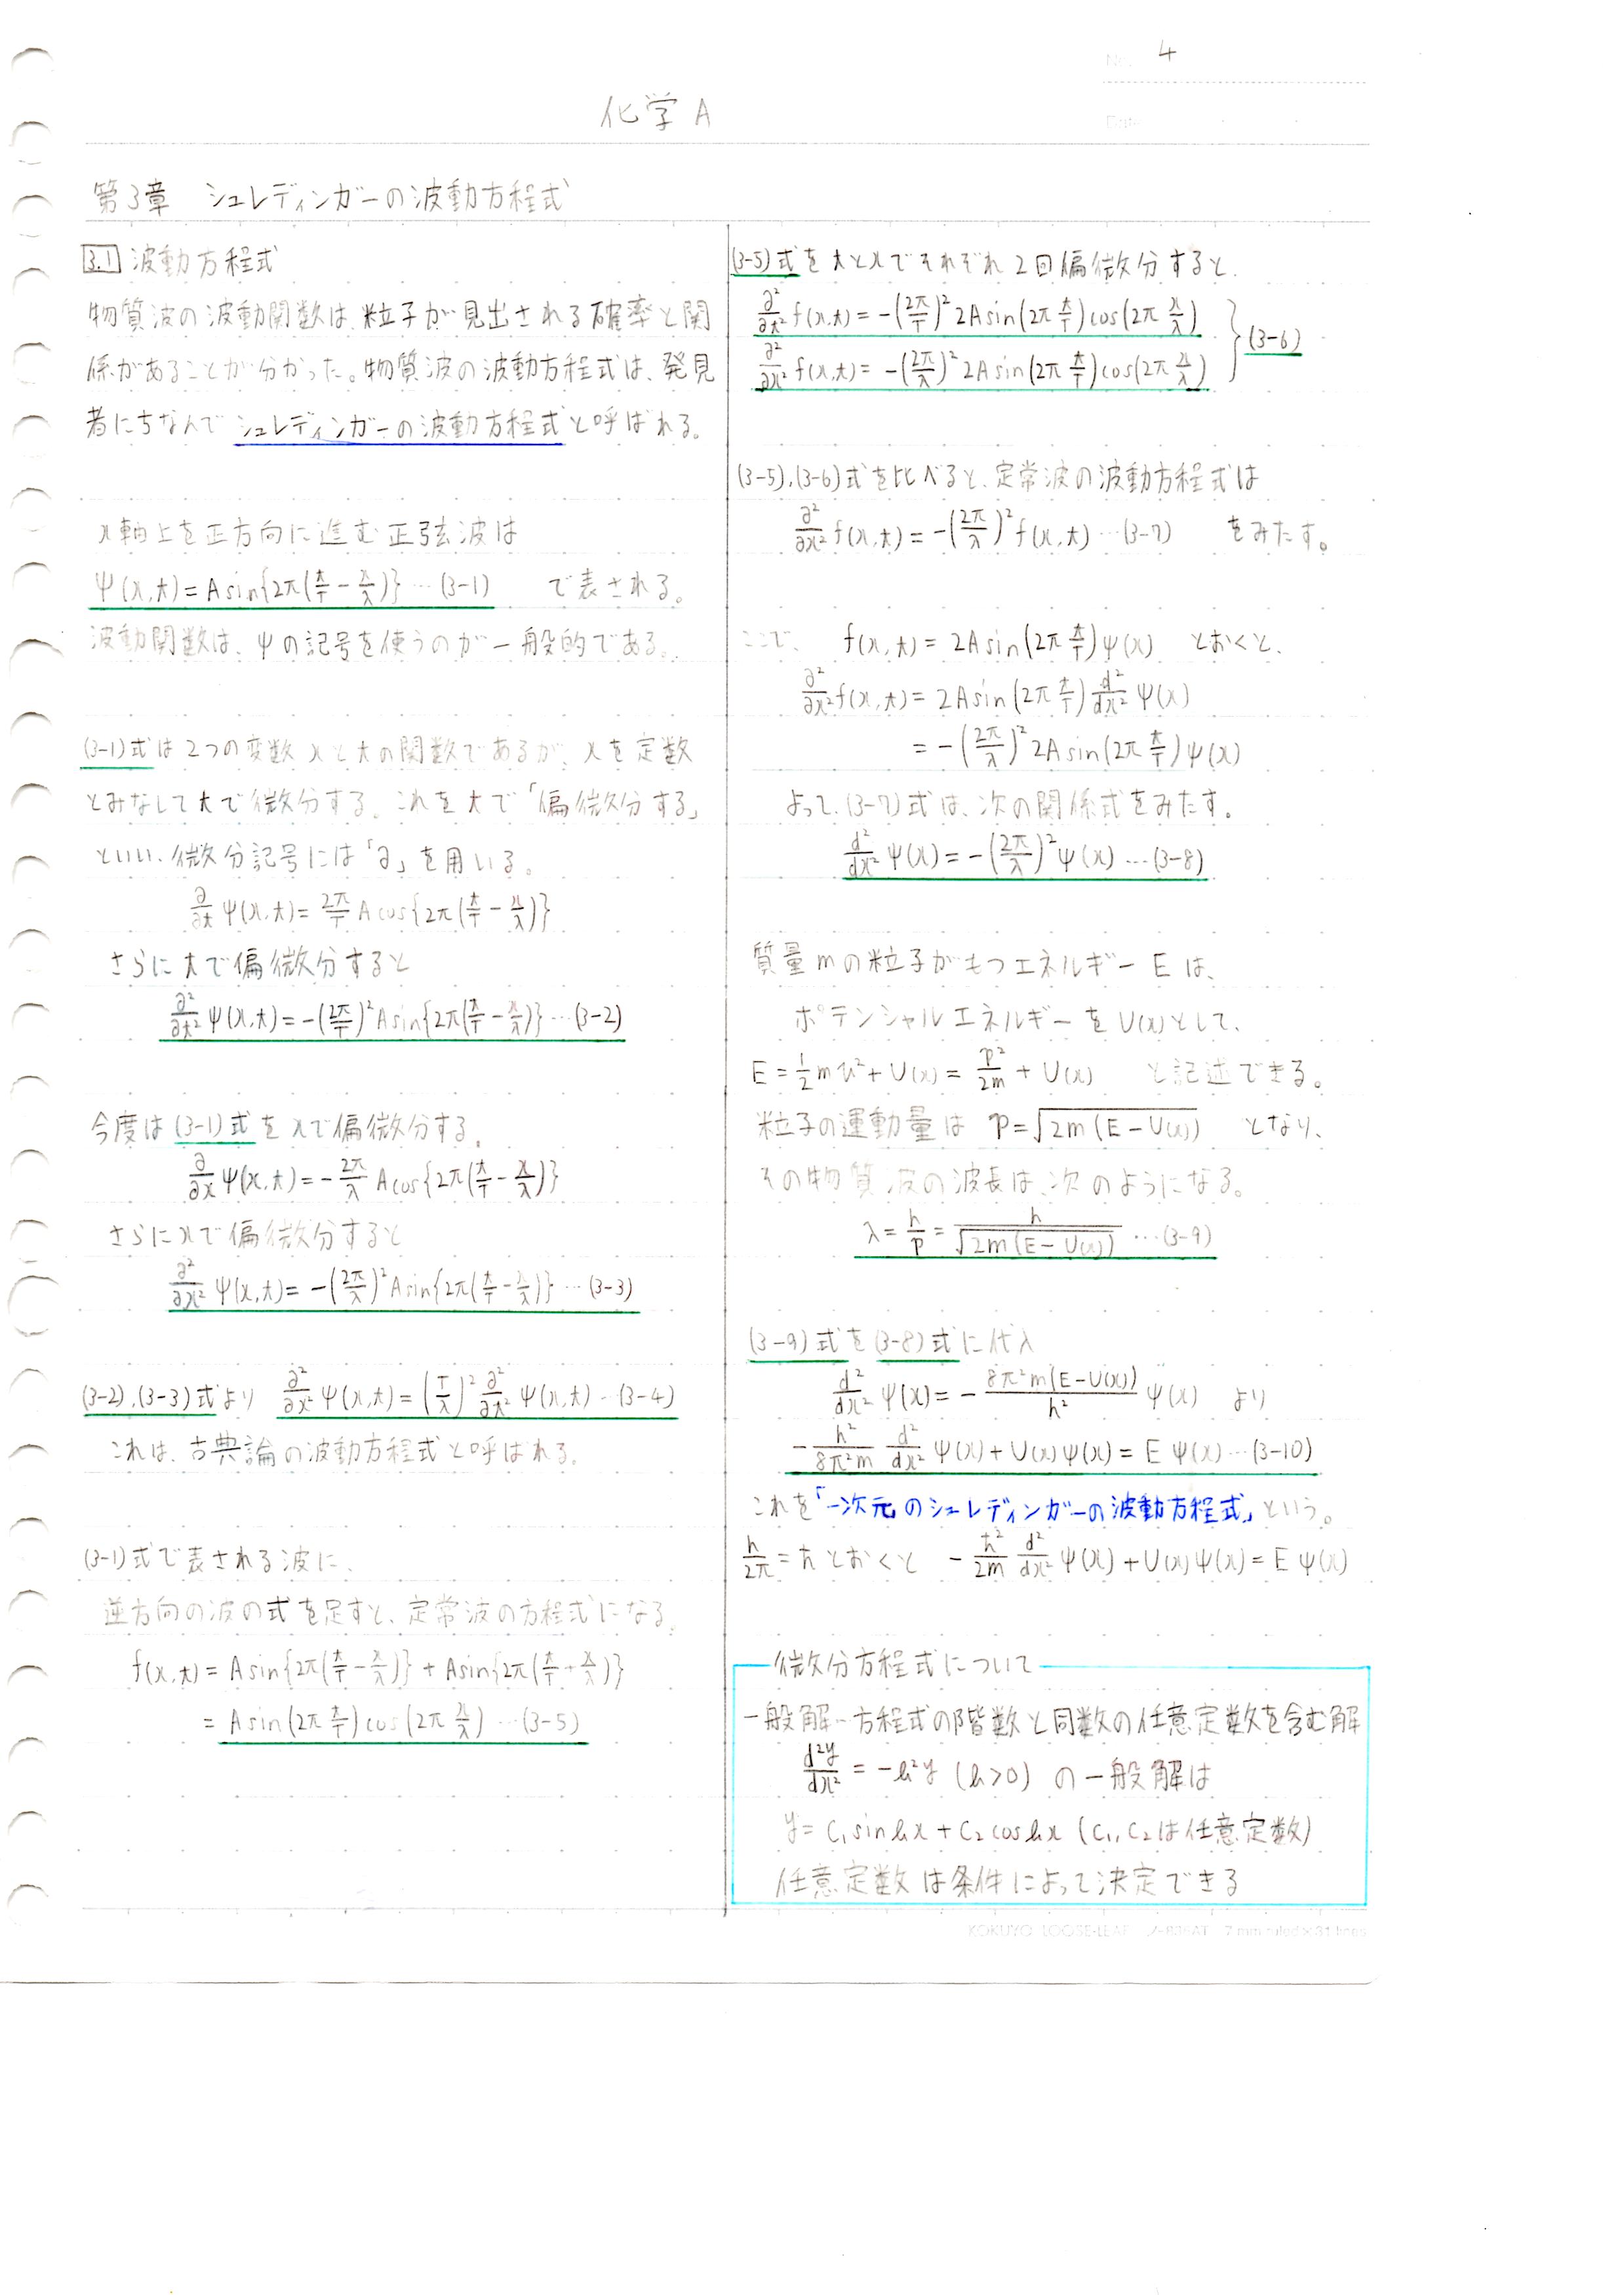 No. 4
化学 A
Date
第3章 シュレディンガーの波動方程式
3.1 波動方程式
物質波の波動関数は、粒子が見出される確率と関
係があることが分かった。物質波の波動方程式は、発見
者にちなんでシュレディンガーの波動方程式と呼ばれる。
x軸上を正方向に進む正弦波は
ψ(x,t)=Asin{2π(t/T − x/λ)} …(3-1) で表される。
波動関数は、ψの記号を使うのが一般的である。
(3-1)式は2つの変数xとtの関数であるが、xを定数
とみなしてtで微分する。これをtで「偏微分する」
といい、微分記号には「∂」を用いる。
∂/∂t ψ(x,t)= 2π/T Acos{2π(t/T − x/λ)}
さらにtで偏微分すると
∂²/∂t² ψ(x,t)=−(2π/T)²Asin{2π(t/T − x/λ)} …(3-2)
今度は(3-1)式をxで偏微分する。
∂/∂x ψ(x,t)=−2π/λ Acos{2π(t/T − x/λ)}
さらにxで偏微分すると
∂²/∂x² ψ(x,t)=−(2π/λ)²Asin{2π(t/T − x/λ)} …(3-3)
(3-2),(3-3)式より ∂²/∂x² ψ(x,t)=(T/λ)² ∂²/∂t² ψ(x,t) …(3-4)
これは、古典論の波動方程式と呼ばれる。
(3-1)式で表される波に、
逆方向の波の式を足すと、定常波の方程式になる。
f(x,t)=Asin{2π(t/T − x/λ)}+Asin{2π(t/T + x/λ)}
=Asin(2π t/T)cos(2π x/λ) …(3-5)
(3-5)式をtとxでそれぞれ2回偏微分すると、
∂²/∂t² f(x,t)=−(2π/T)²2Asin(2π t/T)cos(2π x/λ)
∂²/∂x² f(x,t)=−(2π/λ)²2Asin(2π t/T)cos(2π x/λ) } (3-6)
(3-5),(3-6)式を比べると、定常波の波動方程式は
∂²/∂x² f(x,t)=−(2π/λ)²f(x,t) …(3-7) をみたす。
ここで、 f(x,t)=2Asin(2π t/T)ψ(x) とおくと、
∂²/∂x² f(x,t)=2Asin(2π t/T) d²/dx² ψ(x)
=−(2π/λ)²2Asin(2π t/T)ψ(x)
よって、(3-7)式は、次の関係式をみたす。
d²/dx² ψ(x)=−(2π/λ)²ψ(x) …(3-8)
質量mの粒子がもつエネルギーEは、
ポテンシャルエネルギーをU(x)として、
E=1/2 mv²+U(x)=p²/2m+U(x) と記述できる。
粒子の運動量は p=√2m(E−U(x)) となり、
その物質波の波長は、次のようになる。
λ=h/p=h/√2m(E−U(x)) …(3-9)
(3-9)式を(3-8)式に代入
d²/dx² ψ(x)=−8π²m(E−U(x))/h² ψ(x) より
−h²/8π²m d²/dx² ψ(x)+U(x)ψ(x)=Eψ(x) …(3-10)
これを「一次元のシュレディンガーの波動方程式」という。
h/2π=ħとおくと −ħ²/2m d²/dx² ψ(x)+U(x)ψ(x)=Eψ(x)
微分方程式について
一般解…方程式の階数と同数の任意定数を含む解
d²y/dx²=−k²y (k>0) の一般解は
y=C₁sinkx+C₂coskx (C₁,C₂は任意定数)
任意定数は条件によって決定できる
KOKUYO LOOSE-LEAF ノ-836AT 7 mm ruled × 31 lines